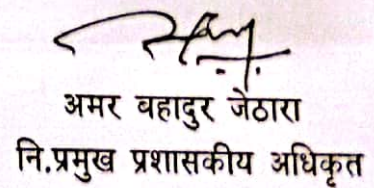 अमर वहादुर जेठारा
नि.प्रमुख प्रशासकीय अधिकृत